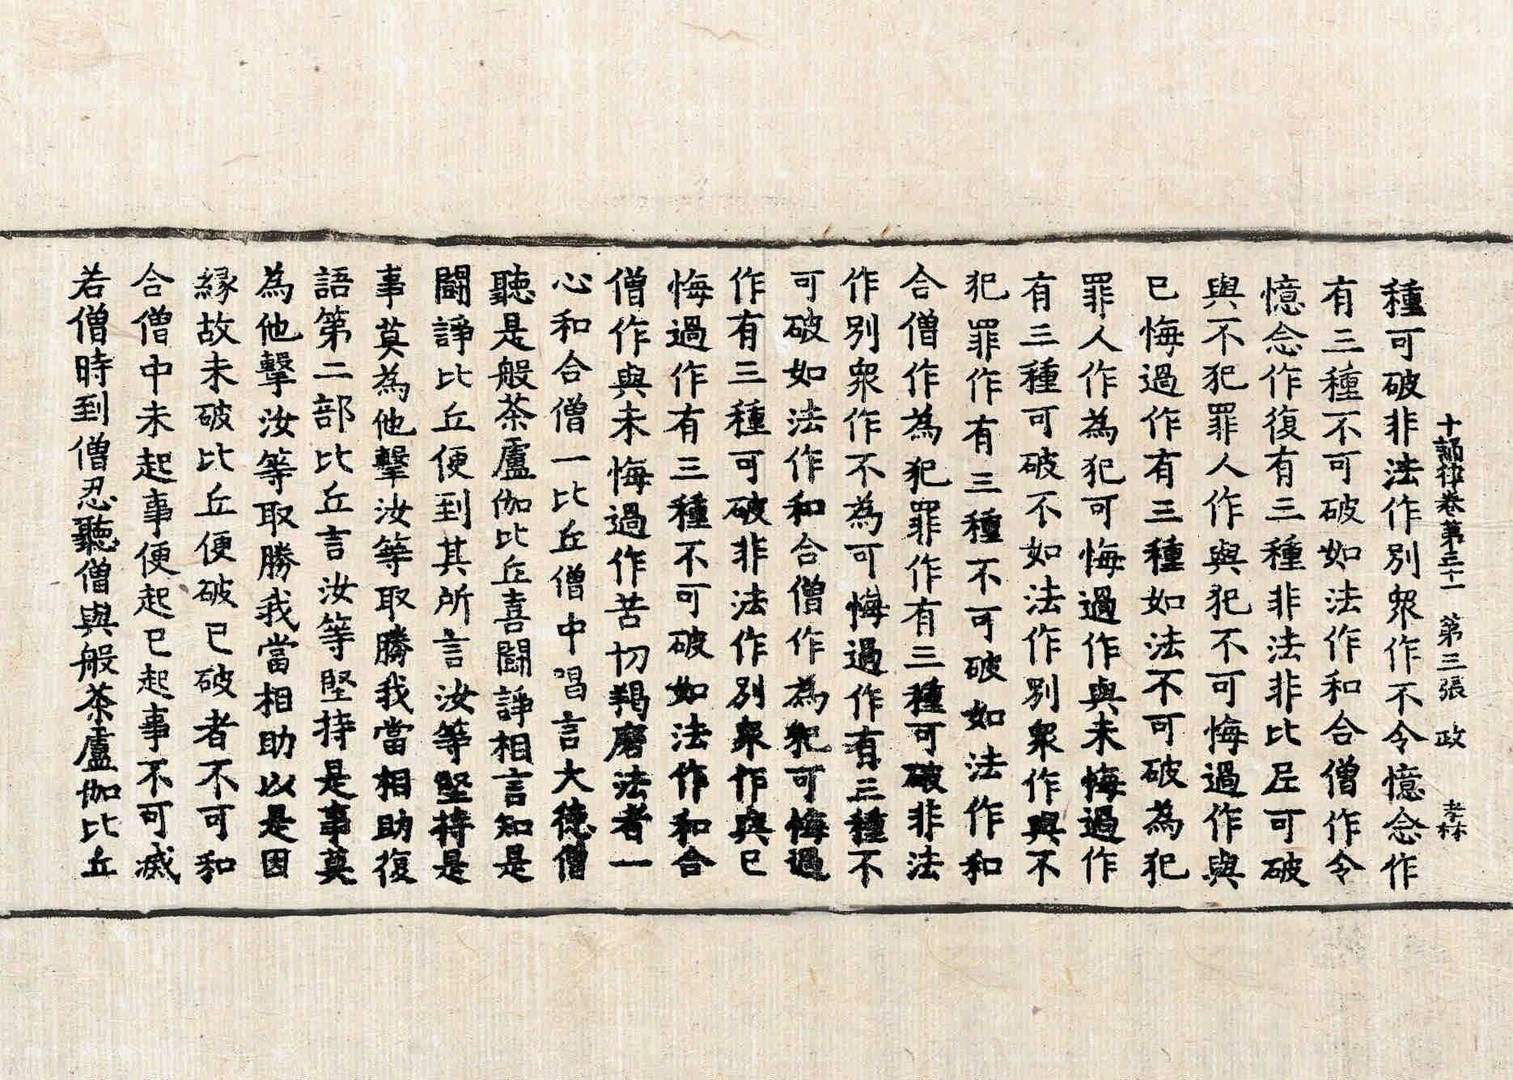 十誦律卷第三十一 第三張 政 孝林
種可破非法作別衆作不令憶念作
有三種不可破如法作和合僧作令
憶念作復有三種非法非比𡰱可破
與不犯罪人作與犯不可悔過作與
已悔過作有三種如法不可破為犯
罪人作為犯可悔過作與未悔過作
有三種可破不如法作別衆作與不
犯罪作有三種不可破如法作和
合僧作為犯罪作有三種可破非法
作別衆作不為可悔過作有三種不
可破如法作和合僧作為犯可悔過
作有三種可破非法作別衆作與已
悔過作有三種不可破如法作和合
僧作與未悔過作苦切羯磨法者一
心和合僧一比丘僧中唱言大德僧
聽是般茶盧伽比丘喜鬪諍相言知是
鬪諍比丘便到其所言汝等堅持是
事莫為他擊汝等取勝我當相助復
語第二部比丘言汝等堅持是事莫
為他擊汝等取勝我當相助以是因
縁故未破比丘便破已破者不可和
合僧中未起事便起已起事不可滅
若僧時到僧忍聽僧與般茶盧伽比丘